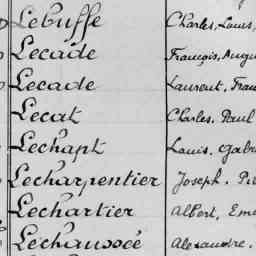 Lebuffe Charles, Louis,
Lecade François, Augu
Lecade Laurent, Fran
Lecat Charles. Paul
Lechapt Louis. Gabr
Lecharpentier Joseph. Pi
Lechartier Albert, Em
Lechaussée Alexandre.